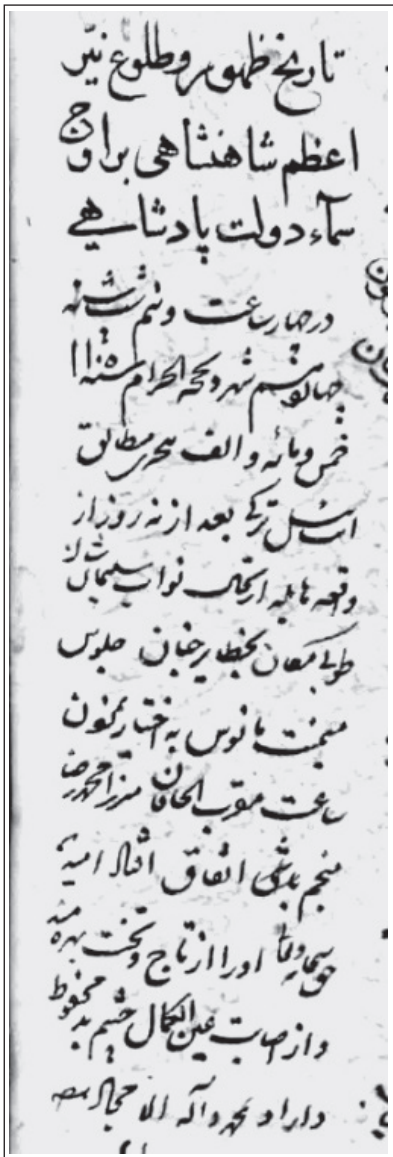 تاریخ ظهور و طلوع نیّر
اعظم شاهنشاهی بر اوج
سماء دولت پادشاهی
در چهار ساعت و نیم شب شنبه
چهاردهم شهر ذیحجه الحرام سنه ۱۱۰۵
خمس و مائه و الف هجری مطابق
ایت ئیل ترکی بعد از نه روز از
واقعه هایله ارتحال نواب سلیمان شان
طوبی مکان بخطایر جنان جلوس
میمنت مانوس به اختیار میمون
ساعت مقرب الخاقان میرزا محمد رضا
منجم باشی اتفاق افتاد امید
حق سبحانه و تعالی او را از تاج و تخت بهره مند
و از اصابت عین الکمال چشم بد محفوظ
داراد بمحمد و آله الامجاد